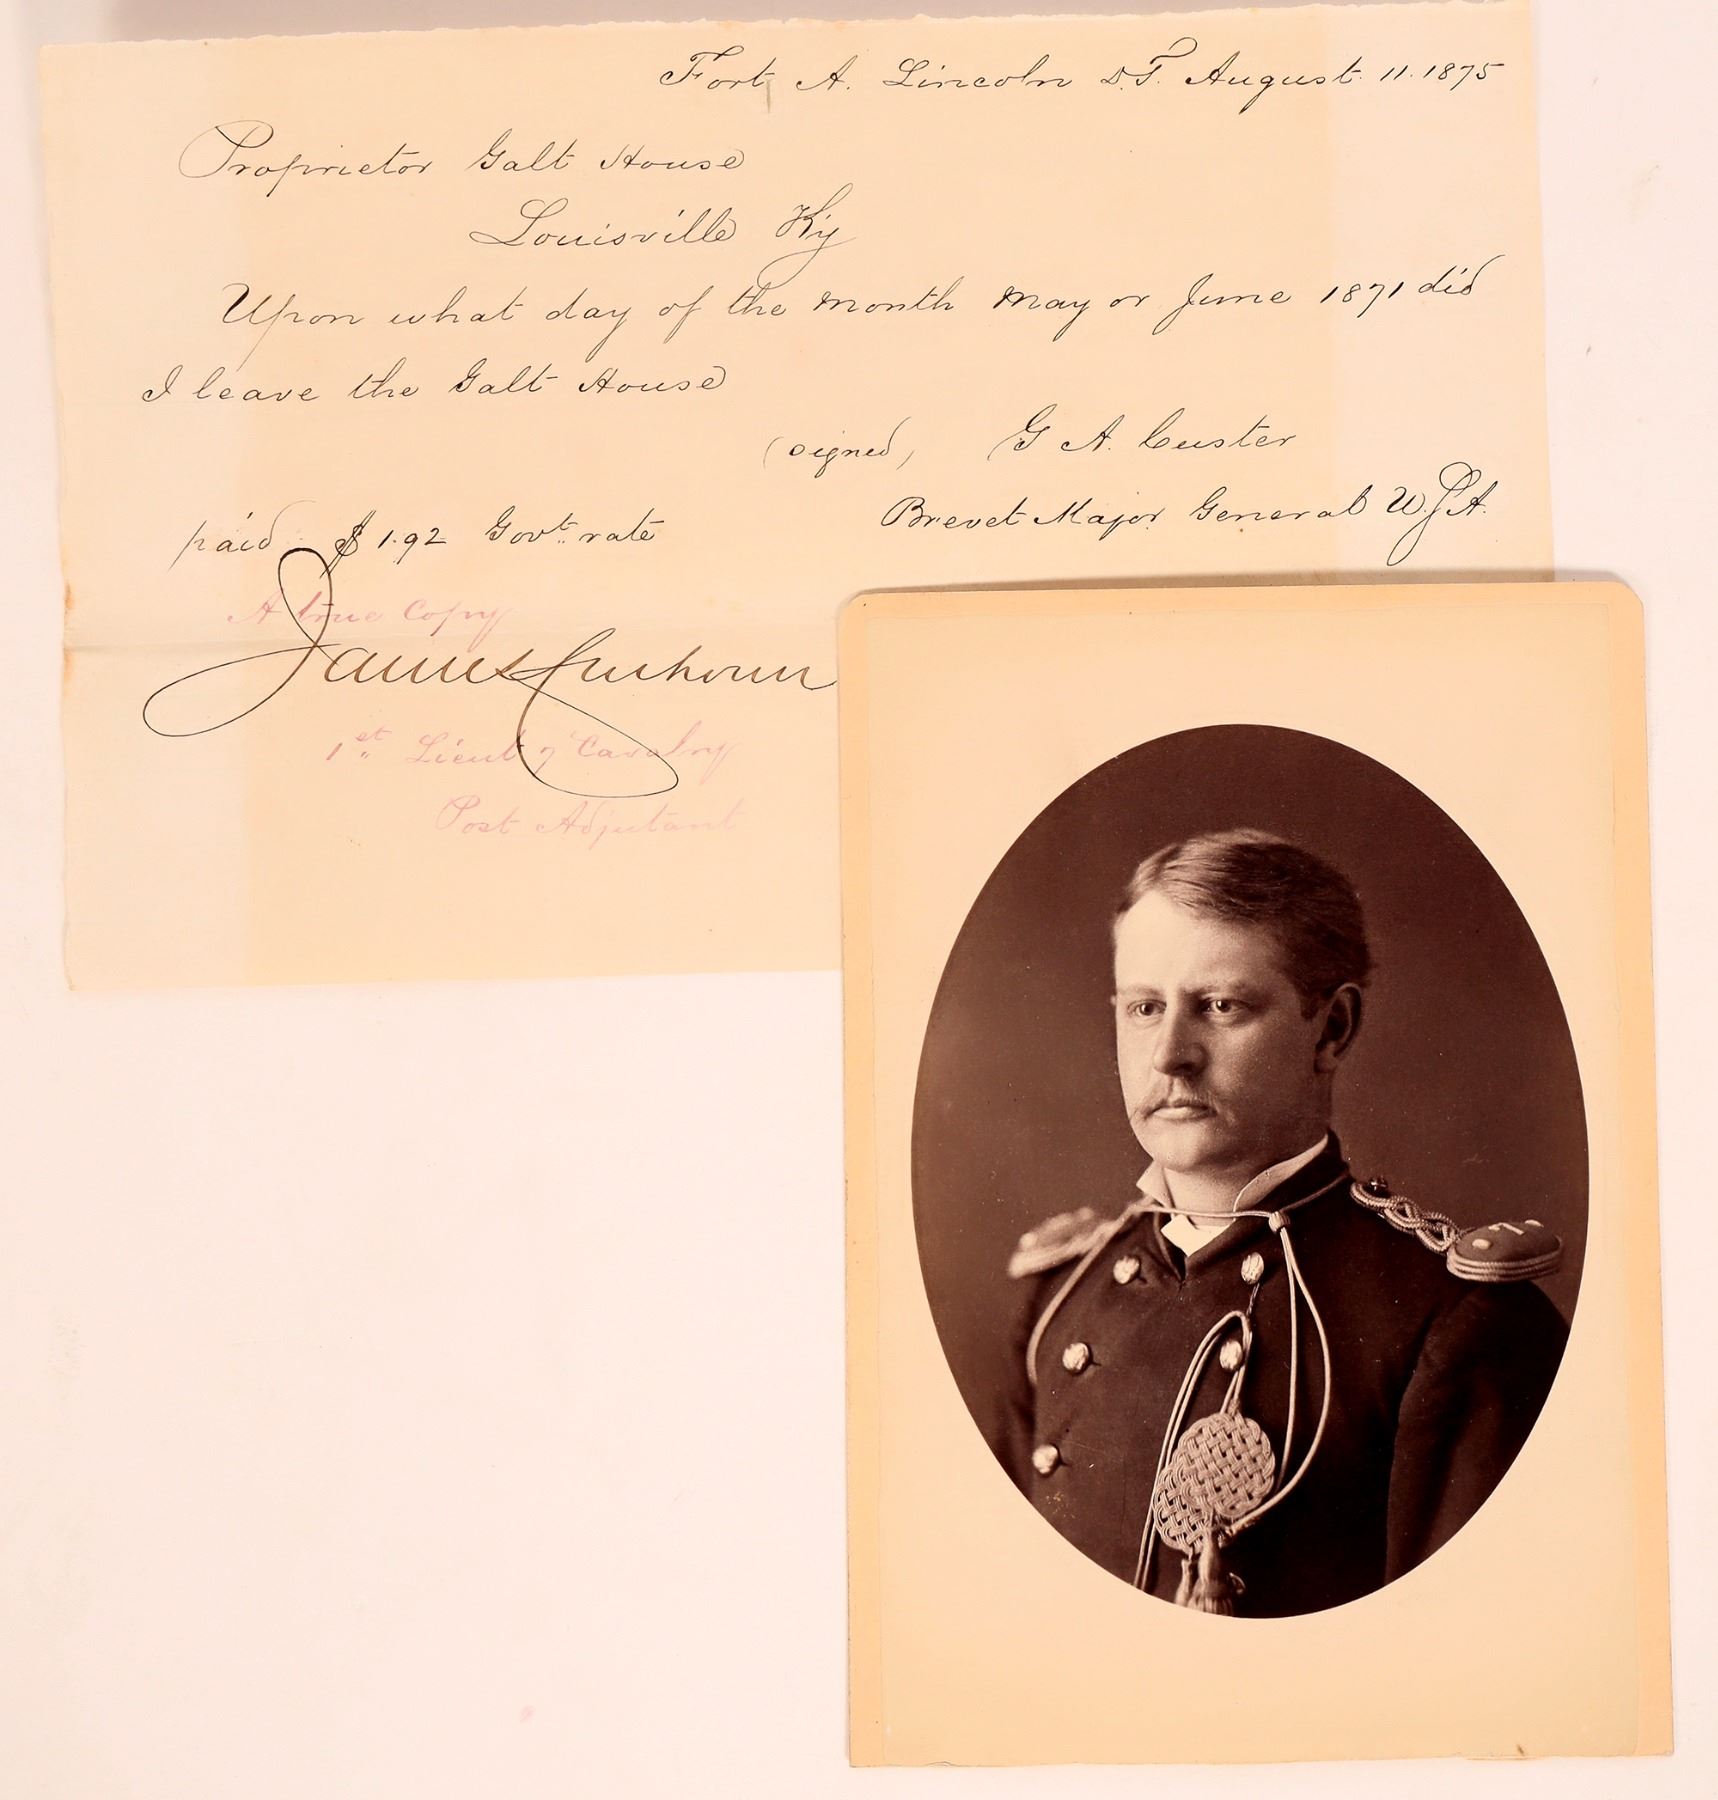 Fort A. Lincoln D.T. August. 11. 1875
Proprietor Galt House
Louisville Ky
Upon what day of the month May or June 1871 did
I leave the Galt House
(signed) G A. Custer
Brevet Major General U.S.A.
paid $1.92 Govt. rate
A true Copy
James Calhoun
1st Lieut 7 Cavalry
Post Adjutant
7